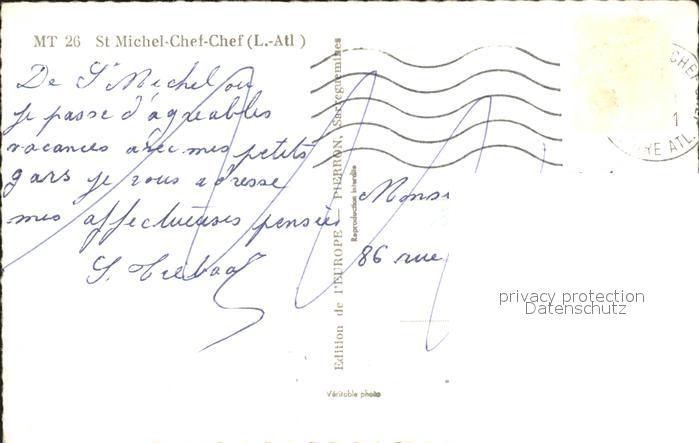 MT 26 St Michel-Chef-Chef (L.-Atl )
De St Michel où
je passe d'agréables
vacances avec mes petits
gars je vous adresse
mes affectueuses pensées
Edition de l'EUROPE — PIERRON, Sarreguemines
Reproduction interdite
Véritable photo
Monsi
86 rue
CHE
1
RE ATL
privacy protection
Datenschutz